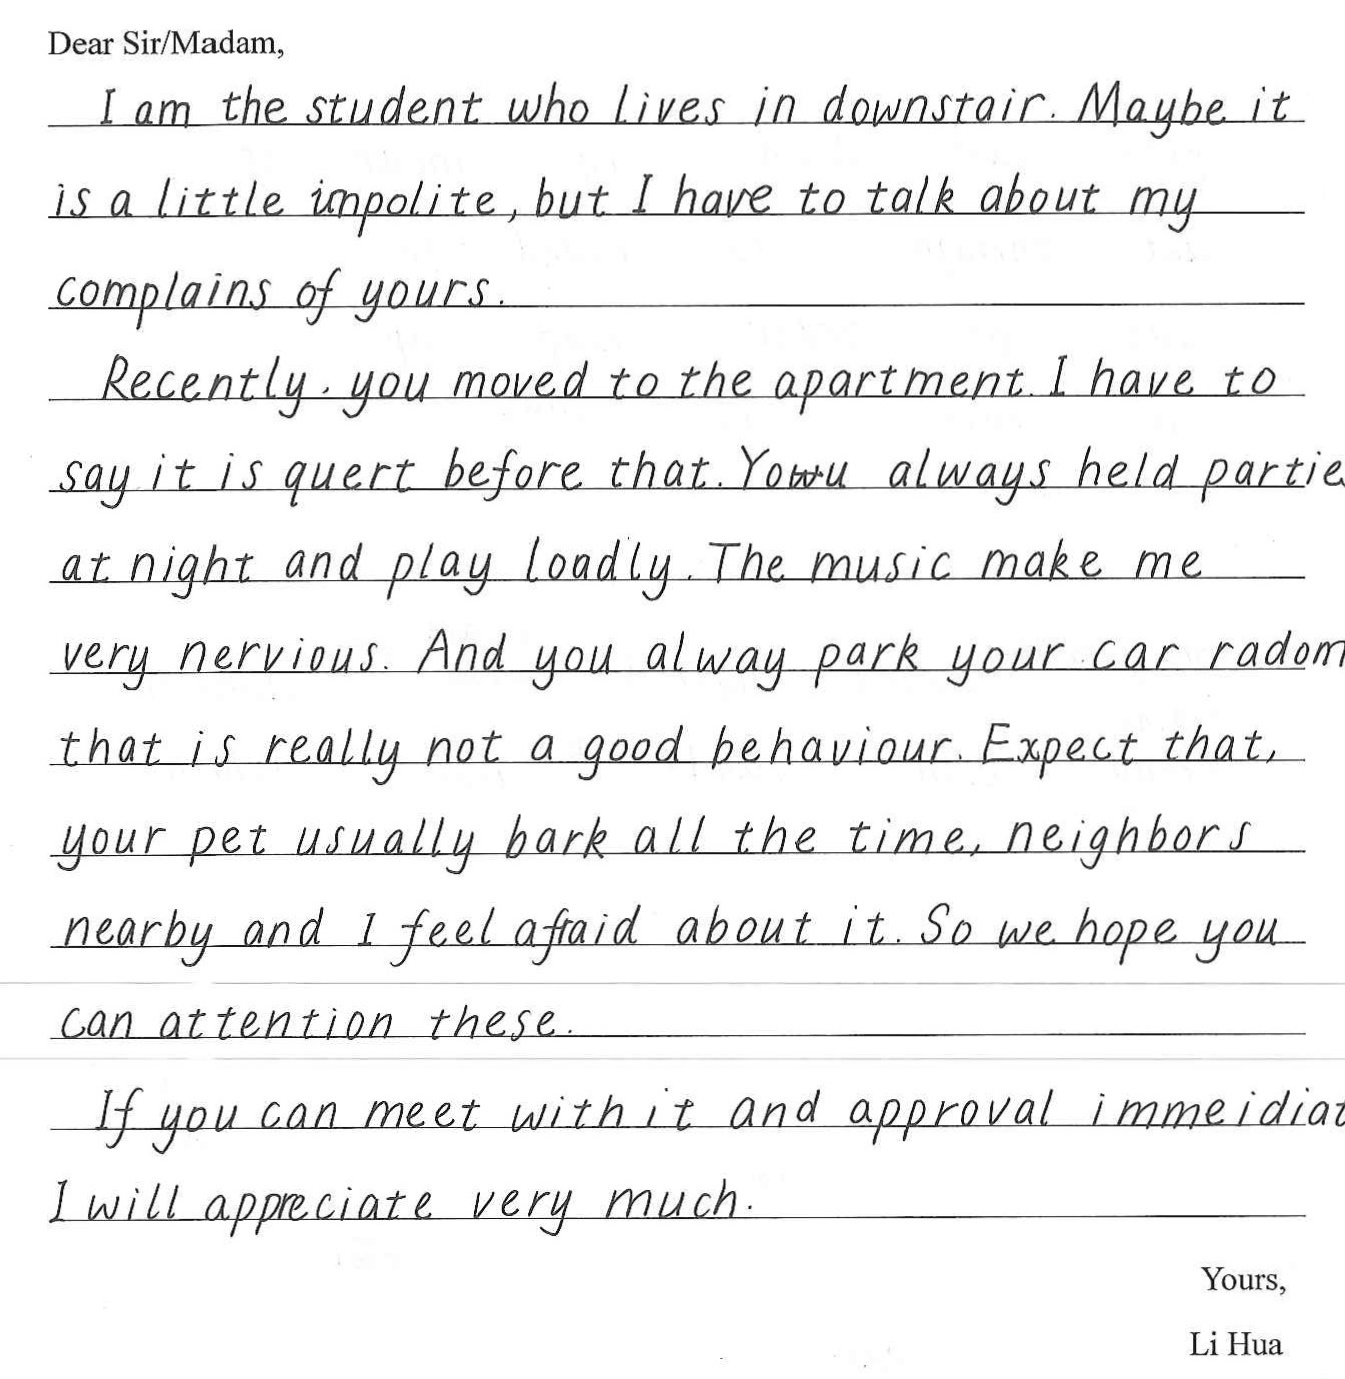 Dear Sir/Madam,
I am the student who lives in downstair. Maybe it
is a little impolite, but I have to talk about my
complains of yours.
Recently, you moved to the apartment. I have to
say it is quert before that. You always held partie
at night and play loadly. The music make me
very nervious. And you alway park your car radom
that is really not a good behaviour. Expect that,
your pet usually bark all the time, neighbors
nearby and I feel afraid about it. So we hope you
can attention these.
If you can meet with it and approval immeidiat
I will appreciate very much.
Yours,
Li Hua